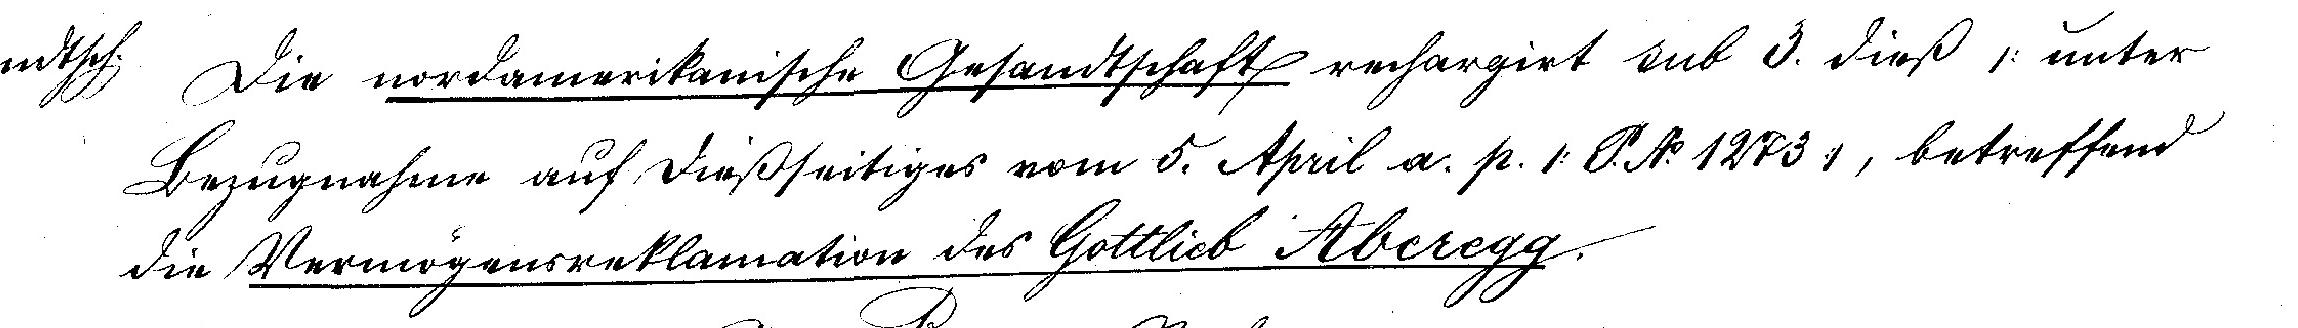 ndtsch. Die nordamerikanische Gesandtschaft rechargirt sub 3. dieß /: unter
Bezugnahme auf dießseitiges vom 5. April a. p. /: P. No 1273 :/, betreffend
die Vermögensreklamation des Gottlieb Aberegg.